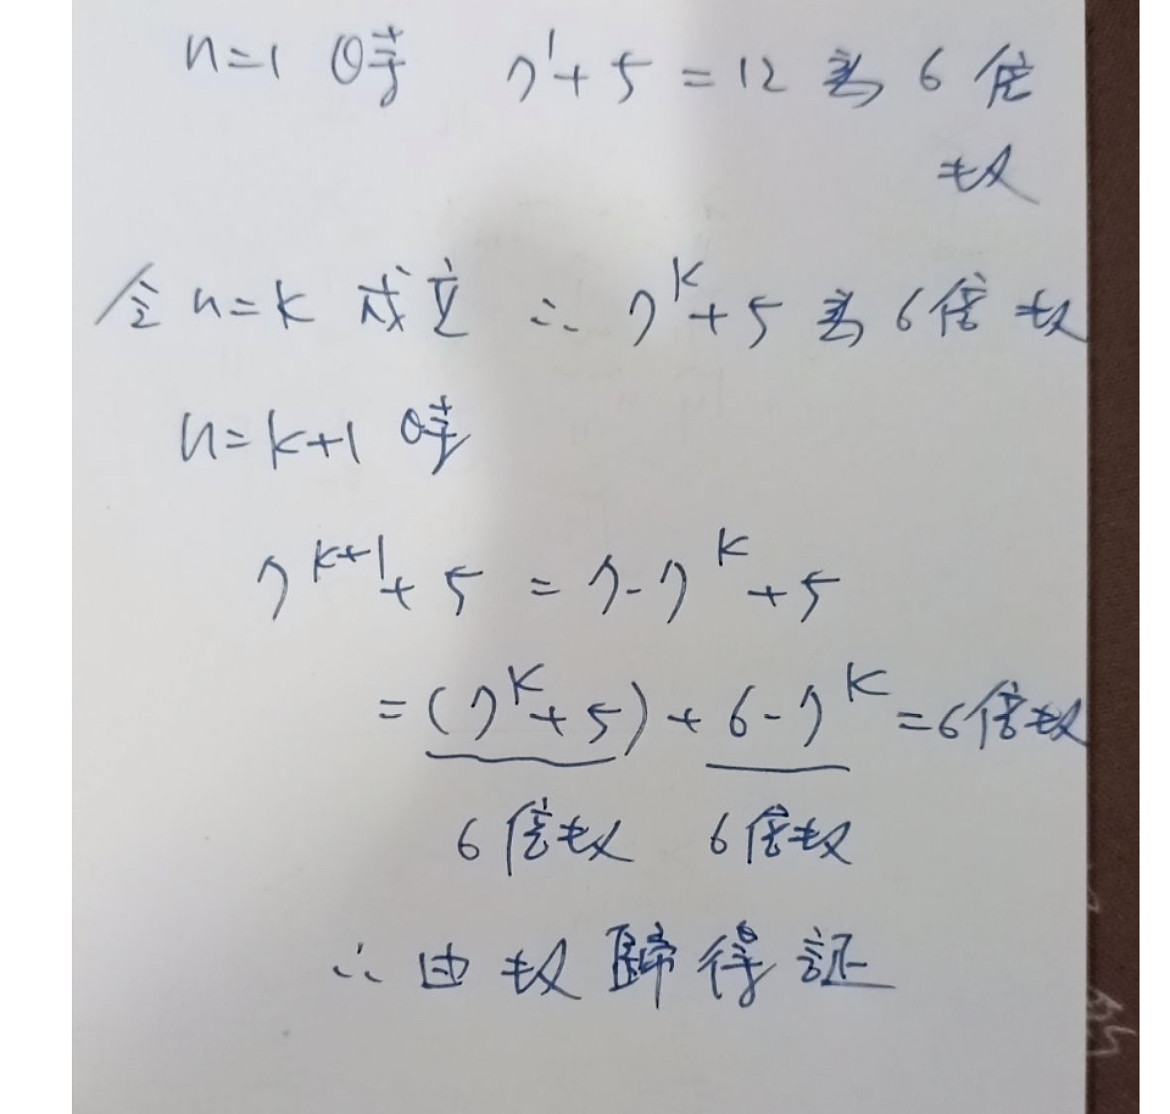 n=1 時 7¹+5=12 為 6 倍
数
令 n=k 成立 ∴ 7^k+5 為 6倍数
n=k+1 時
7^(k+1)+5 = 7-7^k+5
=(7^k+5)+6-7^k=6倍数
6倍数 6倍数
∴ 由数歸得証